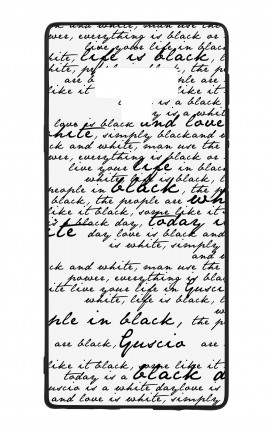 ck and white, man use the
wer, everything is black or
live your life in black
hite, life is black, l
hite, the
like it like it
is a black
y is a white
love is black und love
hite, simply blackand w
ck and white, man use the
wer, everything is black or
live your life in black
white is black, l
people in black, the p
black, the people are wh
like it black, some like it
is black day, today i
ite day love is black and
is white, simply
and w
ck and white, man use the
power, everything is bla
ite live your life in Gusci
white, life is black, l
ple in black, the p
are black, Guscio are
like it black, some like it
today is a black d
uscio is a white daylove is
and love is white, simply